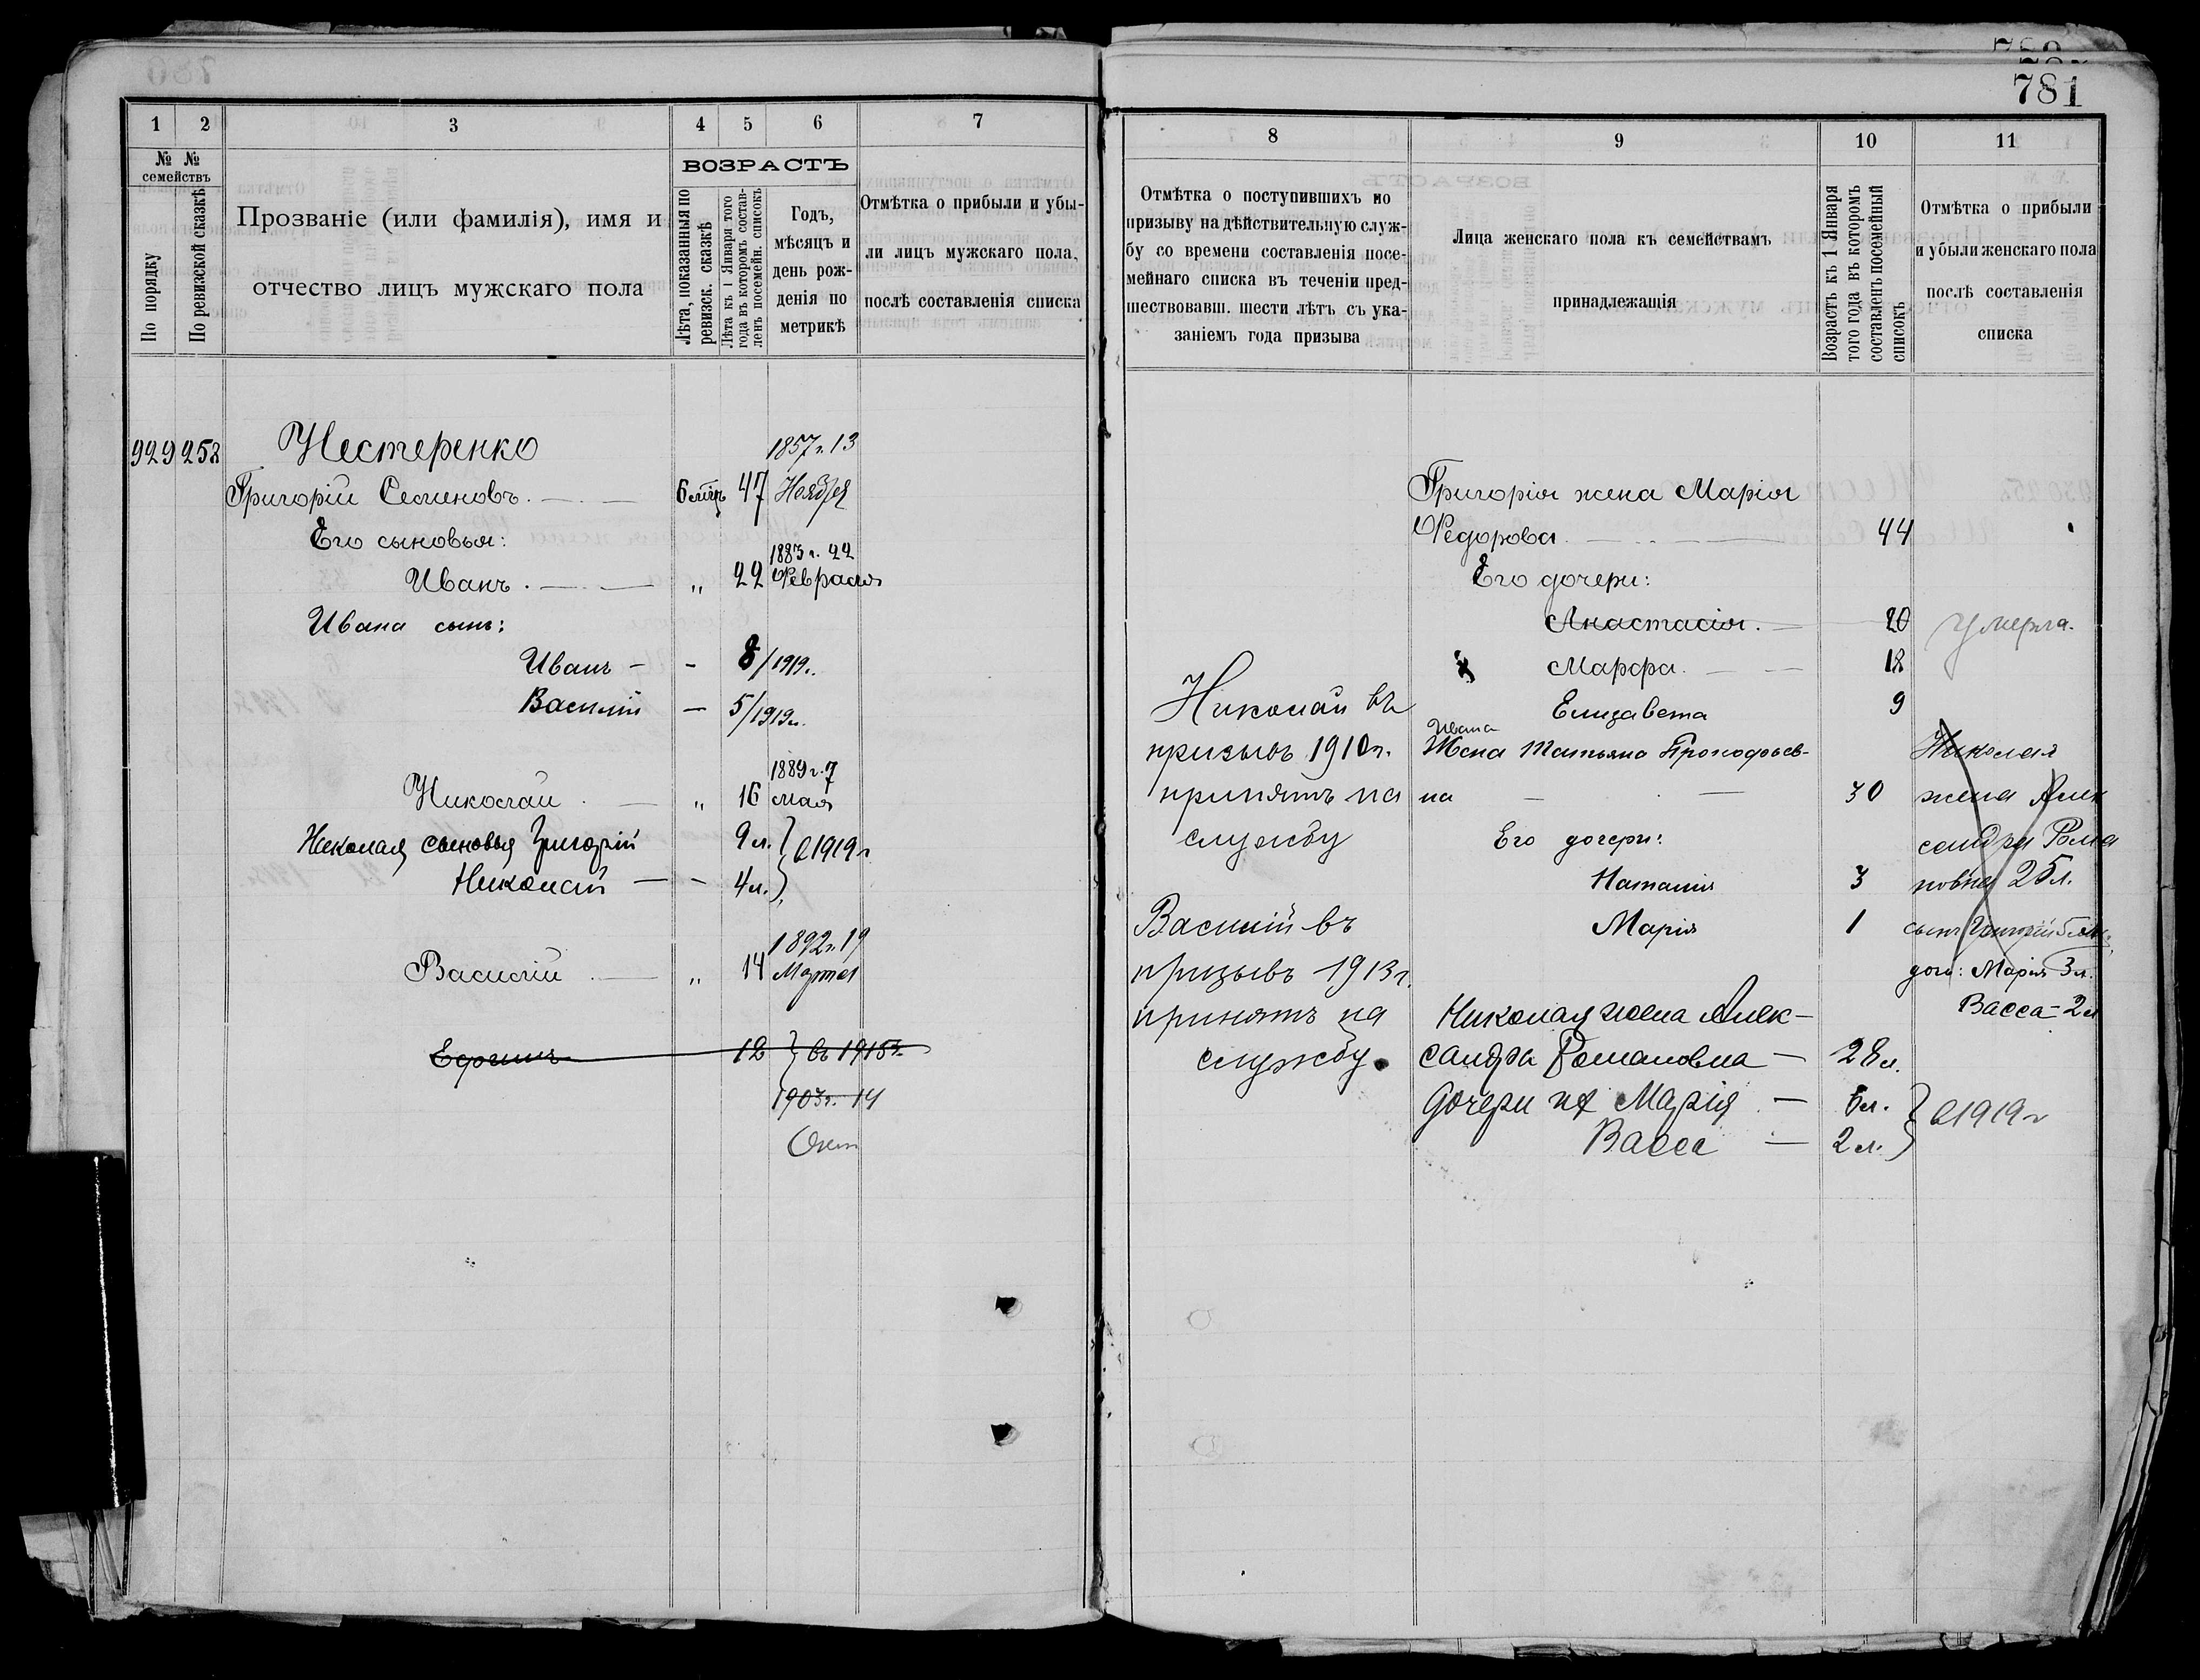 781
1 2 3 4 5 6 7
№ № семействъ
По порядку
По ревизской сказкѣ
Прозваніе (или фамилія), имя и
отчество лицъ мужскаго пола
ВОЗРАСТЪ
Лѣта, показанныя по
ревизск. сказкѣ
Лѣта къ 1 Января того
года въ которомъ состав-
ленъ посемейн. списокъ
Годъ,
мѣсяцъ и
день рож-
денія по
метрикѣ
Отмѣтка о прибыли и убы-
ли лицъ мужскаго пола,
послѣ составленія списка
929 252 Нестеренко 1857 г. 13
Григорій Семеновъ. 47 Ноября
Его сыновья:
1883 г. 22
Иванъ. „ 22 Февраля
Ивана сынъ:
Иванъ - - 8/1919г.
Василій — 5/1919г.
1889 г. 7
Николай „ 16 мая
Николая сыновья Григорій 9 л. } в 1919 г
Николай — - 4 л. }
1892 г. 19
Василій „ 14 Марта
Ефимъ 12 } въ 1915 г.
1903 г. 14
Окт
8 9 10 11
Отмѣтка о поступившихъ по
призыву на дѣйствительную служ-
бу со времени составленія посе-
мейнаго списка въ теченіи пред-
шествовавш. шести лѣтъ съ ука-
заніемъ года призыва
Лица женскаго пола къ семействамъ
принадлежащія
Возрастъ къ 1 Января
того года въ которомъ
составленъ посемейный
списокъ
Отмѣтка о прибыли
и убыли женскаго пола
послѣ составленія
списка
Николай въ
призывъ 1910 г.
принятъ на
службу
Василій въ
призывъ 1913 г.
принятъ на
службу.
Григорія жена Марія
Федорова 44
Его дочери:
Анастасія. 20 умерла.
Марфа. 18
Елизавета 9
Ивана
Жена Татьяна Прокофьев-
на 30
Его дочери:
Наталія 3
Марія 1
Николая жена Алек-
сандра Романовна — 28 л.
Дочери их Мария — 6 л. } в 1919 г
Васса — 2 л. }
Николая
жена Алек
сандра Рома
новна 25 л.
сынъ Григорій
доч: Марія 3 л.
Васса - 2 л